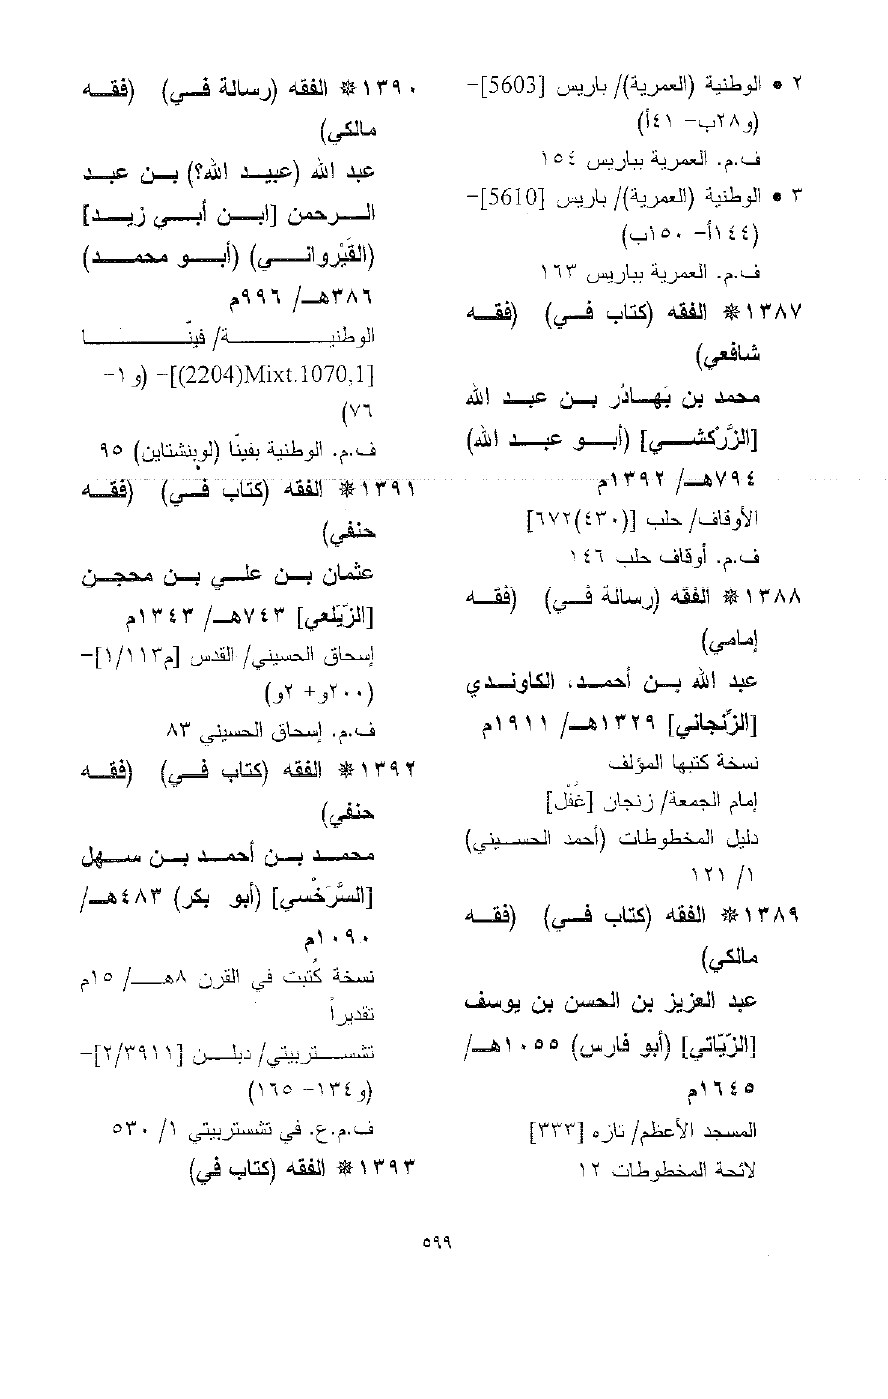 ٢ • الوطنية (العمرية)/ باريس [5603]-
(و٢٨ب- ٤١أ)
ف.م. العمرية بباريس ١٥٤
٣ • الوطنية (العمرية)/ باريس [5610]-
(١٤٤أ- ١٥٠ب)
ف.م. العمرية بباريس ١٦٣
١٣٨٧* الفقه (كتاب في) (فقه
شافعي)
محمد بن بَهادُر بن عبد الله
[الزَّرْكشي] (أبو عبد الله)
٧٩٤هـ/ ١٣٩٢م
الأوقاف/ حلب [(٤٣٠)٦٧٢]
ف.م. أوقاف حلب ١٤٦
١٣٨٨* الفقه (رسالة في) (فقه
إمامي)
عبد الله بن أحمد، الكاوندي
[الزَّنجاني] ١٣٢٩هـ/ ١٩١١م
نسخة كتبها المؤلف
إمام الجمعة/ زنجان [غُفْل]
دليل المخطوطات (أحمد الحسيني)
١/ ١٢١
١٣٨٩* الفقه (كتاب في) (فقه
مالكي)
عبد العزيز بن الحسن بن يوسف
[الزَّيّاتي] (أبو فارس) ١٠٥٥هـ/
١٦٤٥م
المسجد الأعظم/ تازه [٣٣٣]
لائحة المخطوطات ١٢
١٣٩٠* الفقه (رسالة في) (فقه
مالكي)
عبد الله (عبيد الله؟) بن عبد
الرحمن [ابن أبي زيد]
(القَيْرواني) (أبو محمد)
٣٨٦هـ/ ٩٩٦م
الوطنية/ فينّا
[(2204)Mixt.1070,1]- (و١-
٧٦)
ف.م. الوطنية بفينّا (لوبنشتاين) ٩٥
١٣٩١* الفقه (كتاب في) (فقه
حنفي)
عثمان بن علي بن محجن
[الزَّيلعي] ٧٤٣هـ/ ١٣٤٣م
إسحاق الحسيني/ القدس [م١/١١٣]-
(٢٠٠و+ ٢و)
ف.م. إسحاق الحسيني ٨٣
١٣٩٢* الفقه (كتاب في) (فقه
حنفي)
محمد بن أحمد بن سهل
[السَّرَخْسي] (أبو بكر) ٤٨٣هـ/
١٠٩٠م
نسخة كُتبت في القرن ٨هـ/ ١٥م
تقديراً
تشستربيتي/ دبلن [٢/٣٩١١]-
(و١٣٤- ١٦٥)
ف.م.ع. في تشستربيتي ١/ ٥٣٠
١٣٩٣* الفقه (كتاب في)
٥٩٩